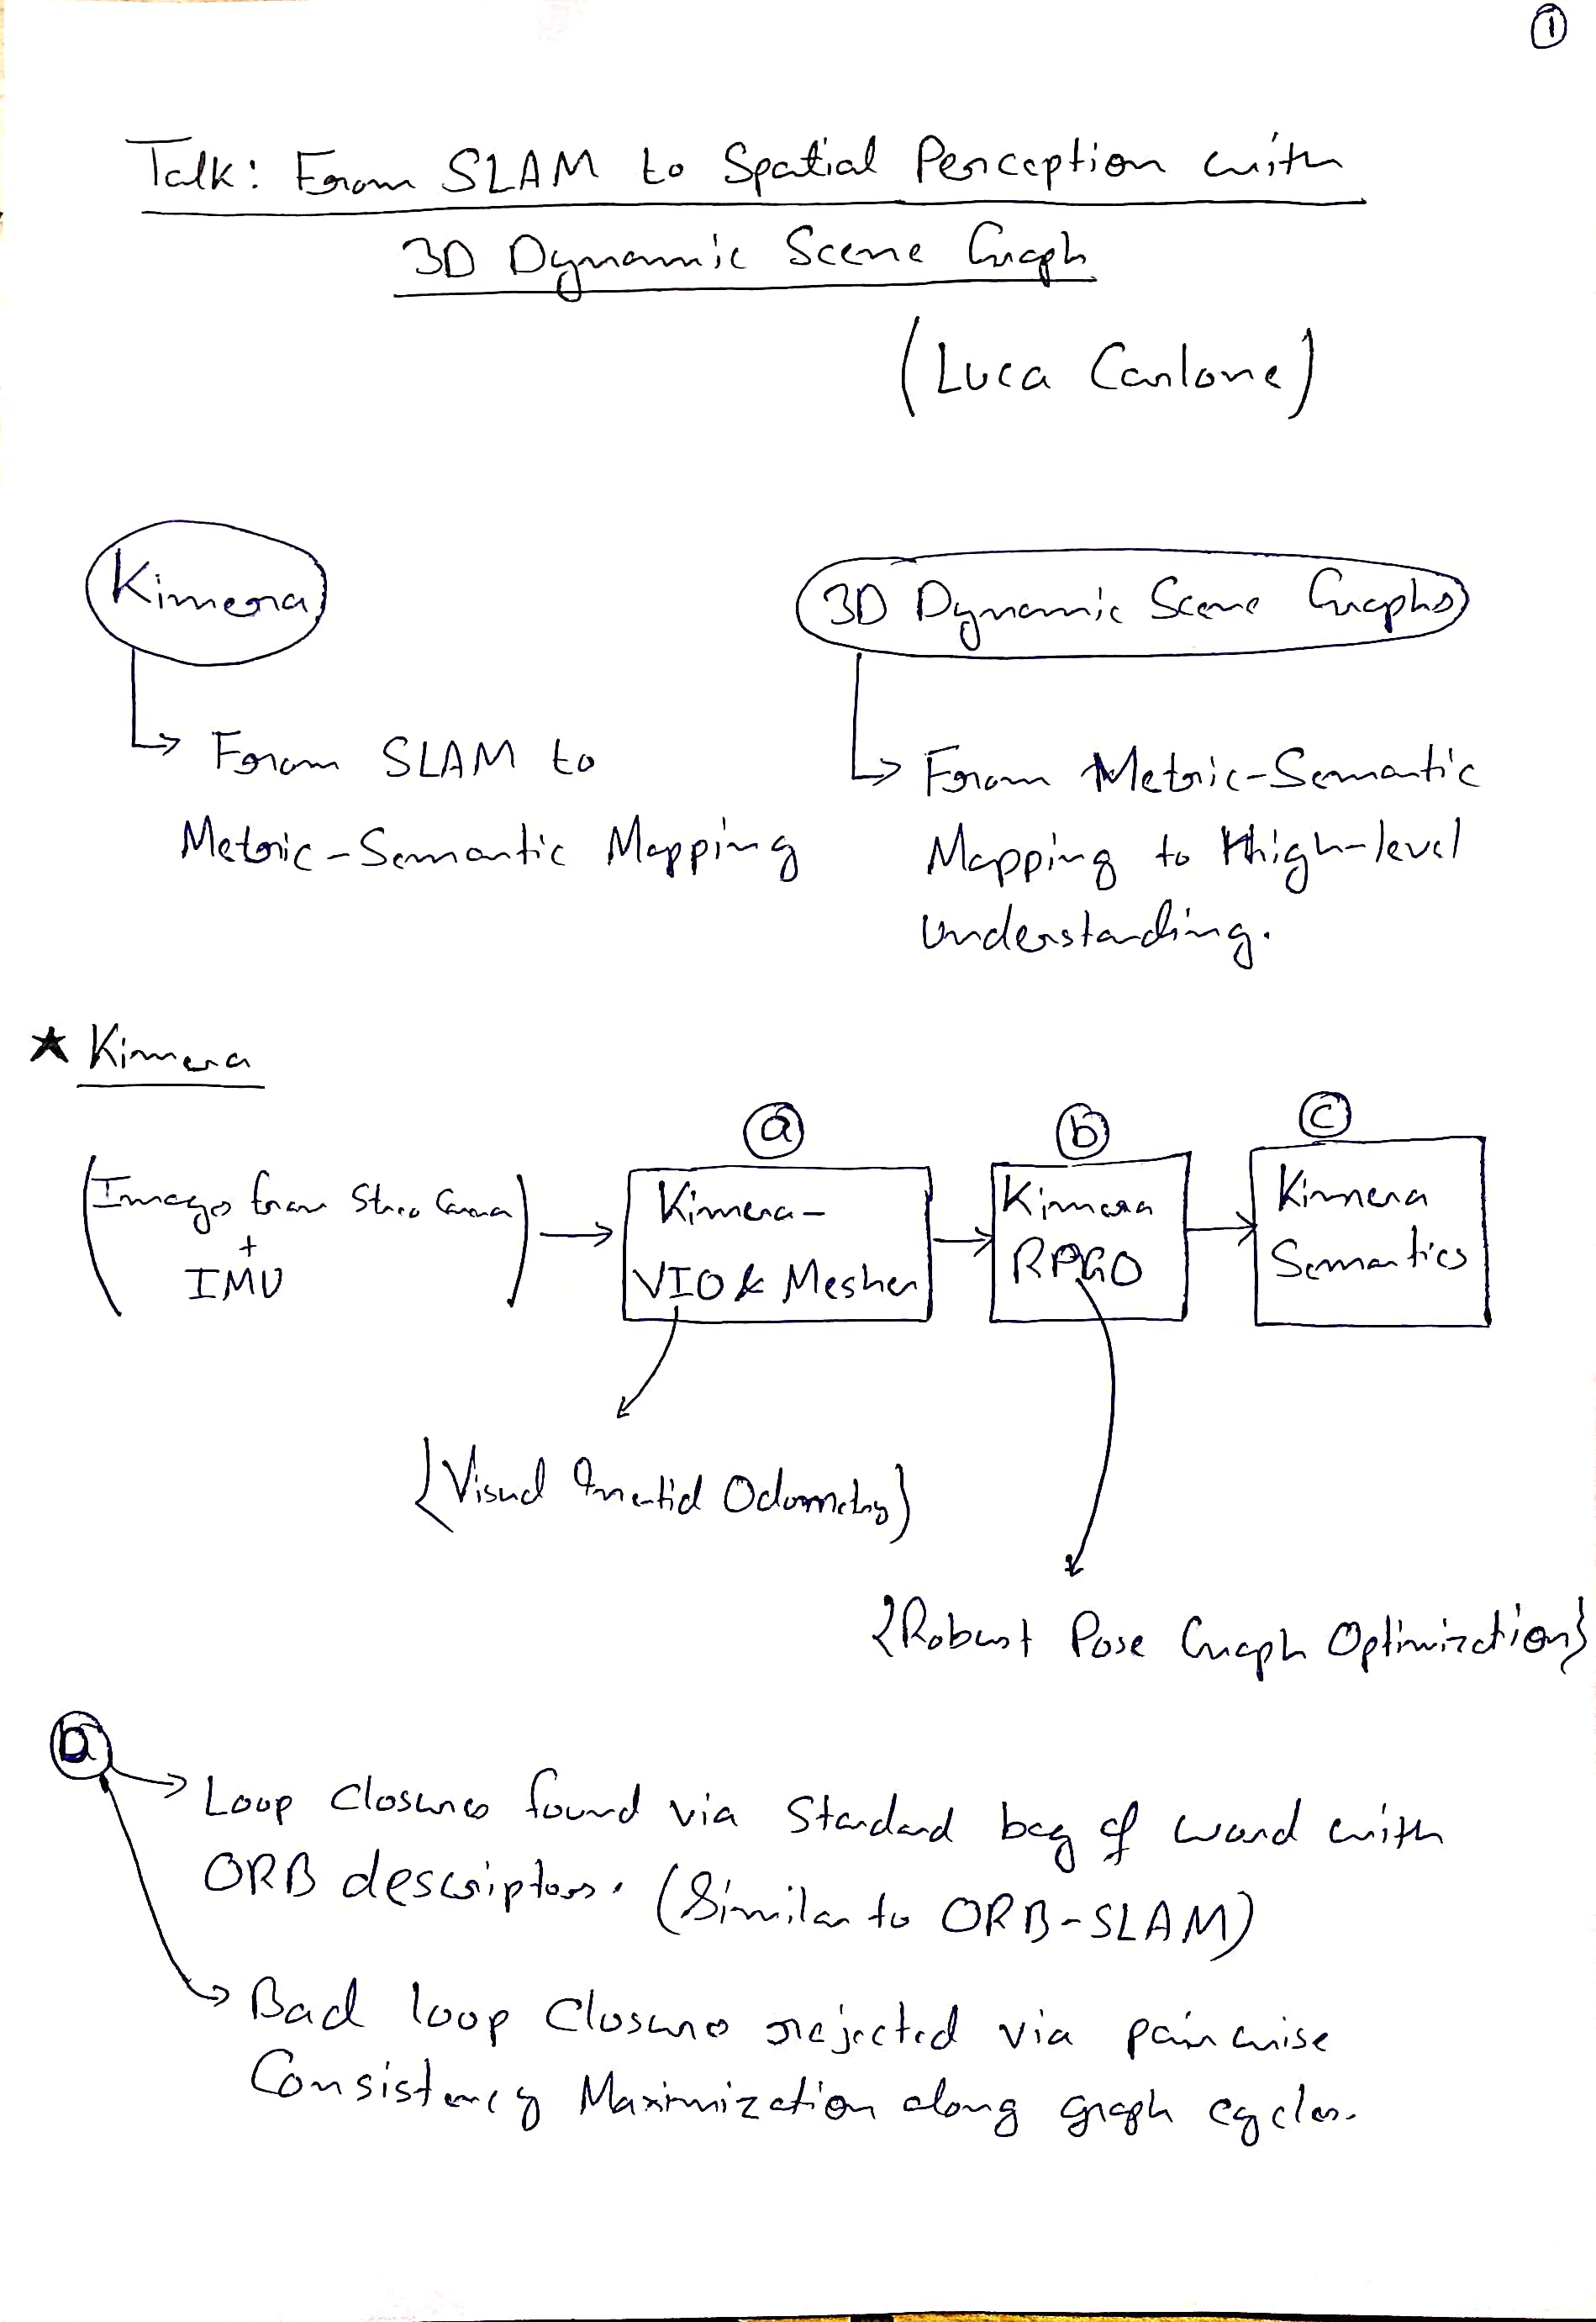 1
Talk: From SLAM to Spatial Perception with
3D Dynamic Scene Graph
(Luca Carlone)
Kimera
3D Dynamic Scene Graphs
From SLAM to
Metric-Semantic Mapping
From Metric-Semantic
Mapping to High-level
understanding.
★ Kimera
a
b
c
(Images from Streo Camera
+
IMU)
Kimera-
VIO & Mesher
Kimera
RPGO
Kimera
Semantics
{Visual Inertial Odometry}
{Robust Pose Graph Optimization}
b
Loop closures found via Standard bag of word with
ORB descriptors. (Similar to ORB-SLAM)
Bad loop closures rejected via pairwise
Consistency Maximization along graph cycles.